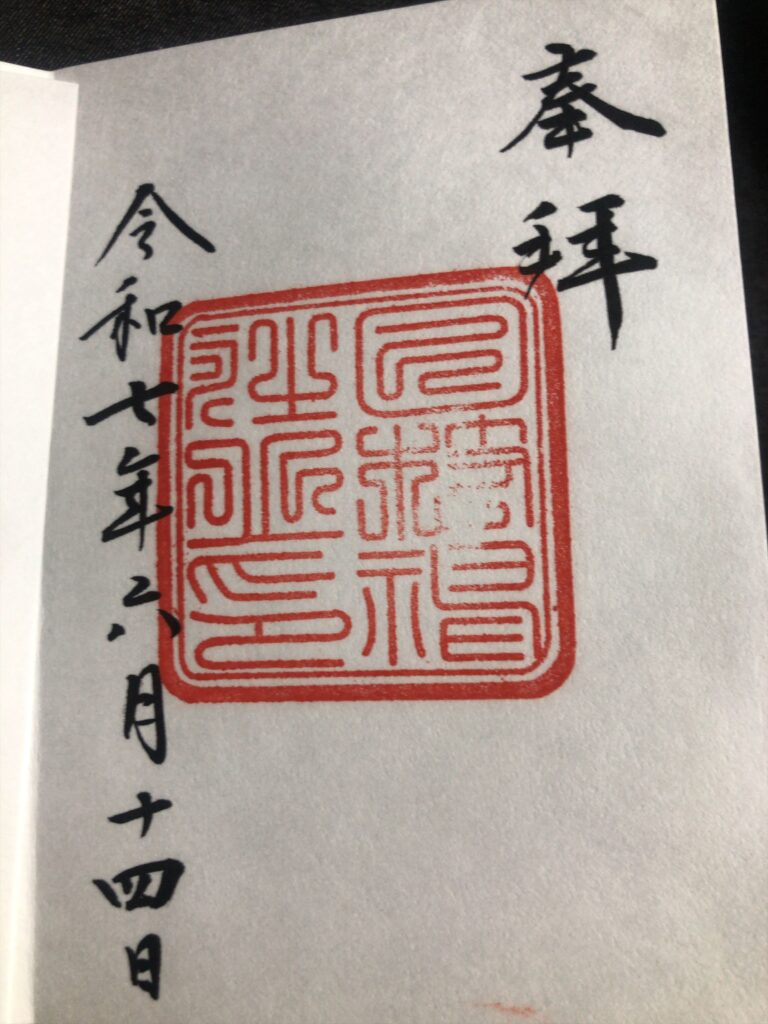 奉拝
令和七年六月十四日